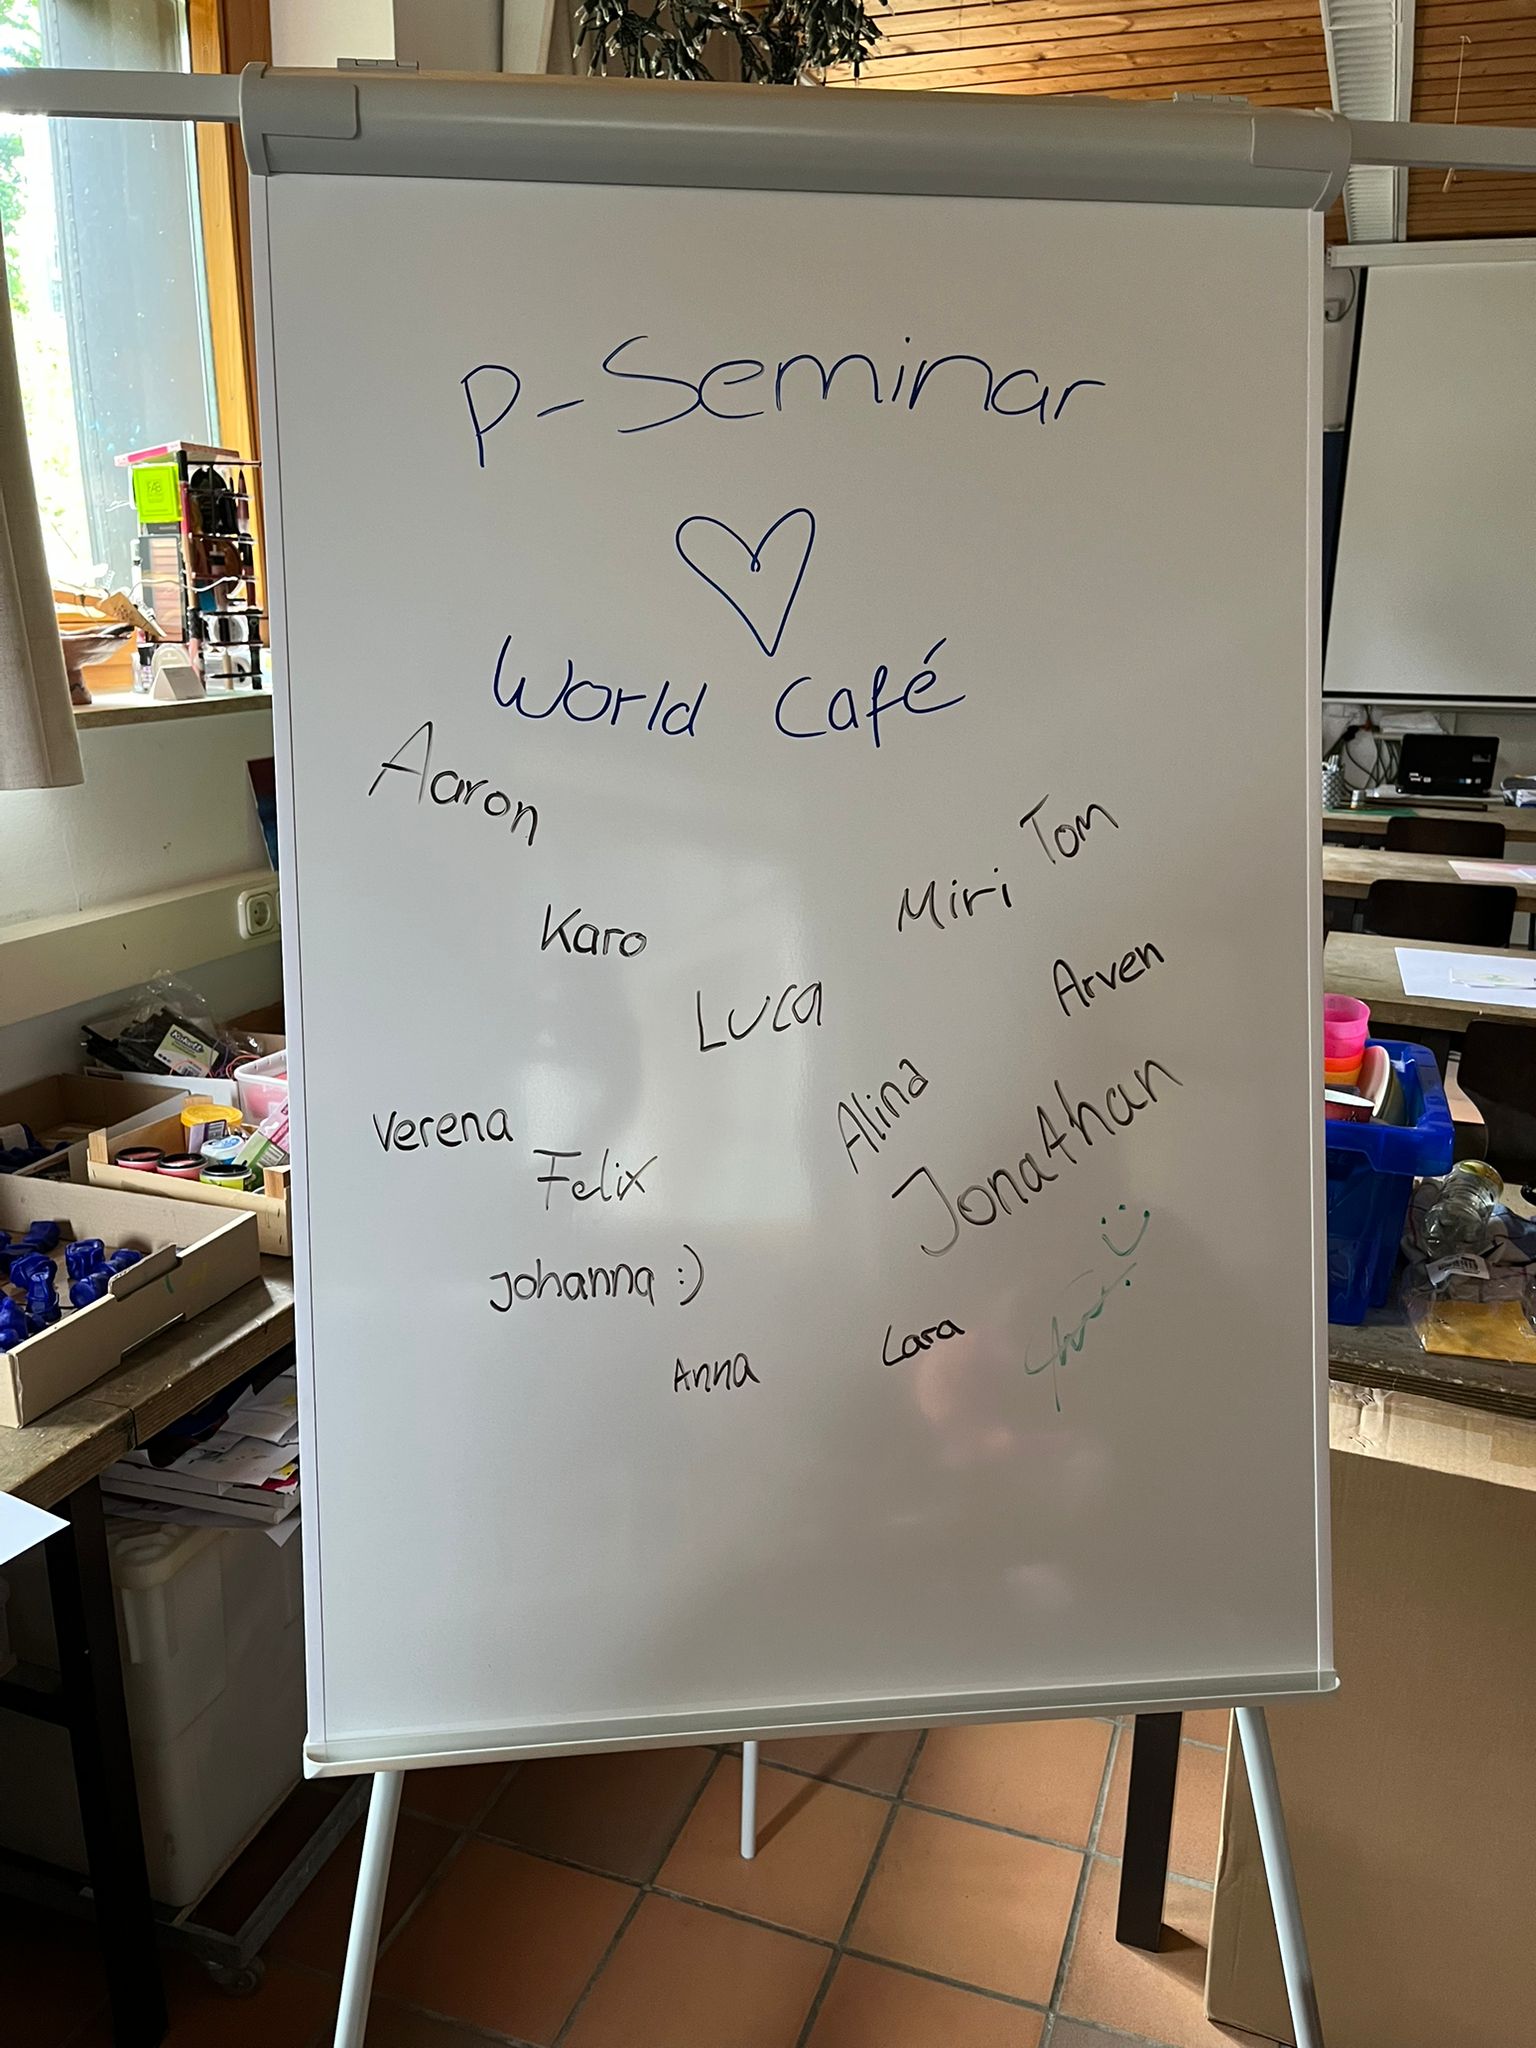 P-Seminar
World Café
Aaron
Tom
Miri
Karo
Arven
Luca
Alina
Verena
Jonathan
Felix
Johanna :)
Lara
Anna